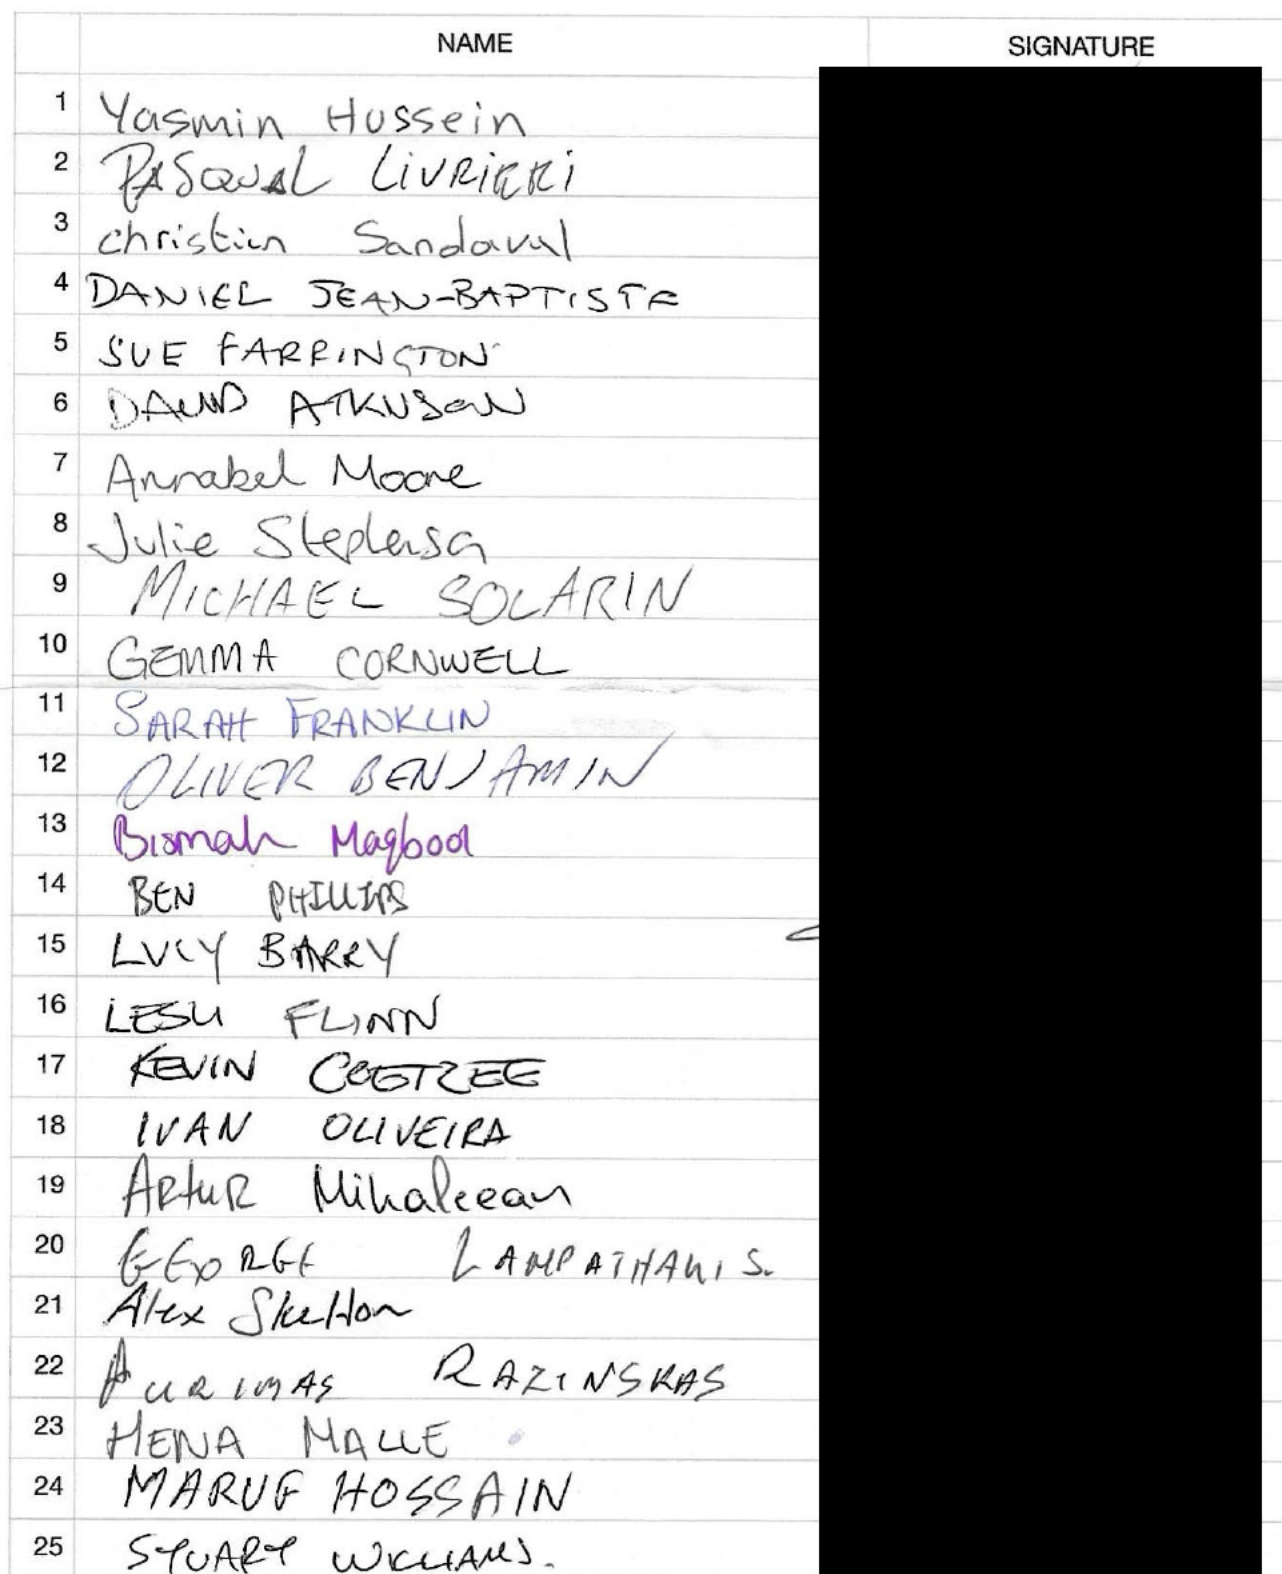 NAME SIGNATURE
1 Yasmin Hussein
2 PASQUAL LIVRIERI
3 christian Sandoval
4 DANIEL JEAN-BAPTISTE
5 SUE FARRINGTON
6 DAVID ATKINSON
7 Annabel Moore
8 Julie Stephenson
9 MICHAEL SOLARIN
10 GEMMA CORNWELL
11 SARAH FRANKLIN
12 OLIVER BENJAMIN
13 Bismah Maqbool
14 BEN PHILLIPS
15 LUCY BARRY
16 LESLI FLINN
17 KEVIN COETZEE
18 IVAN OLIVEIRA
19 ARtuR
20 GEORGE
21 Alex Skelton
22 AURIMAS RAZINSKAS
23 HENA MALLE
24 MARUF HOSSAIN
25 STUART WILLIAMS.